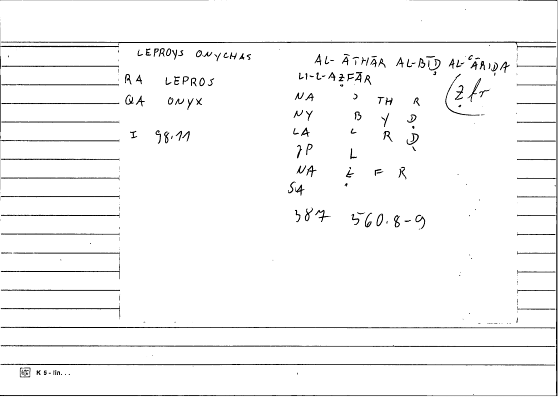 LEPROYS ONYCHAS
RA LEPROS
QA ONYX
I 98.11
AL-ĀTHĀR AL-BĪḌ AL-ʿĀRIḌA
LI-L-AẒFĀR
NA ʾ TH R
NY B Y Ḍ
LA ʿ R Ḍ
JP L
NA Ẓ F R
SA
387 560.8-9
K 5 - lin...